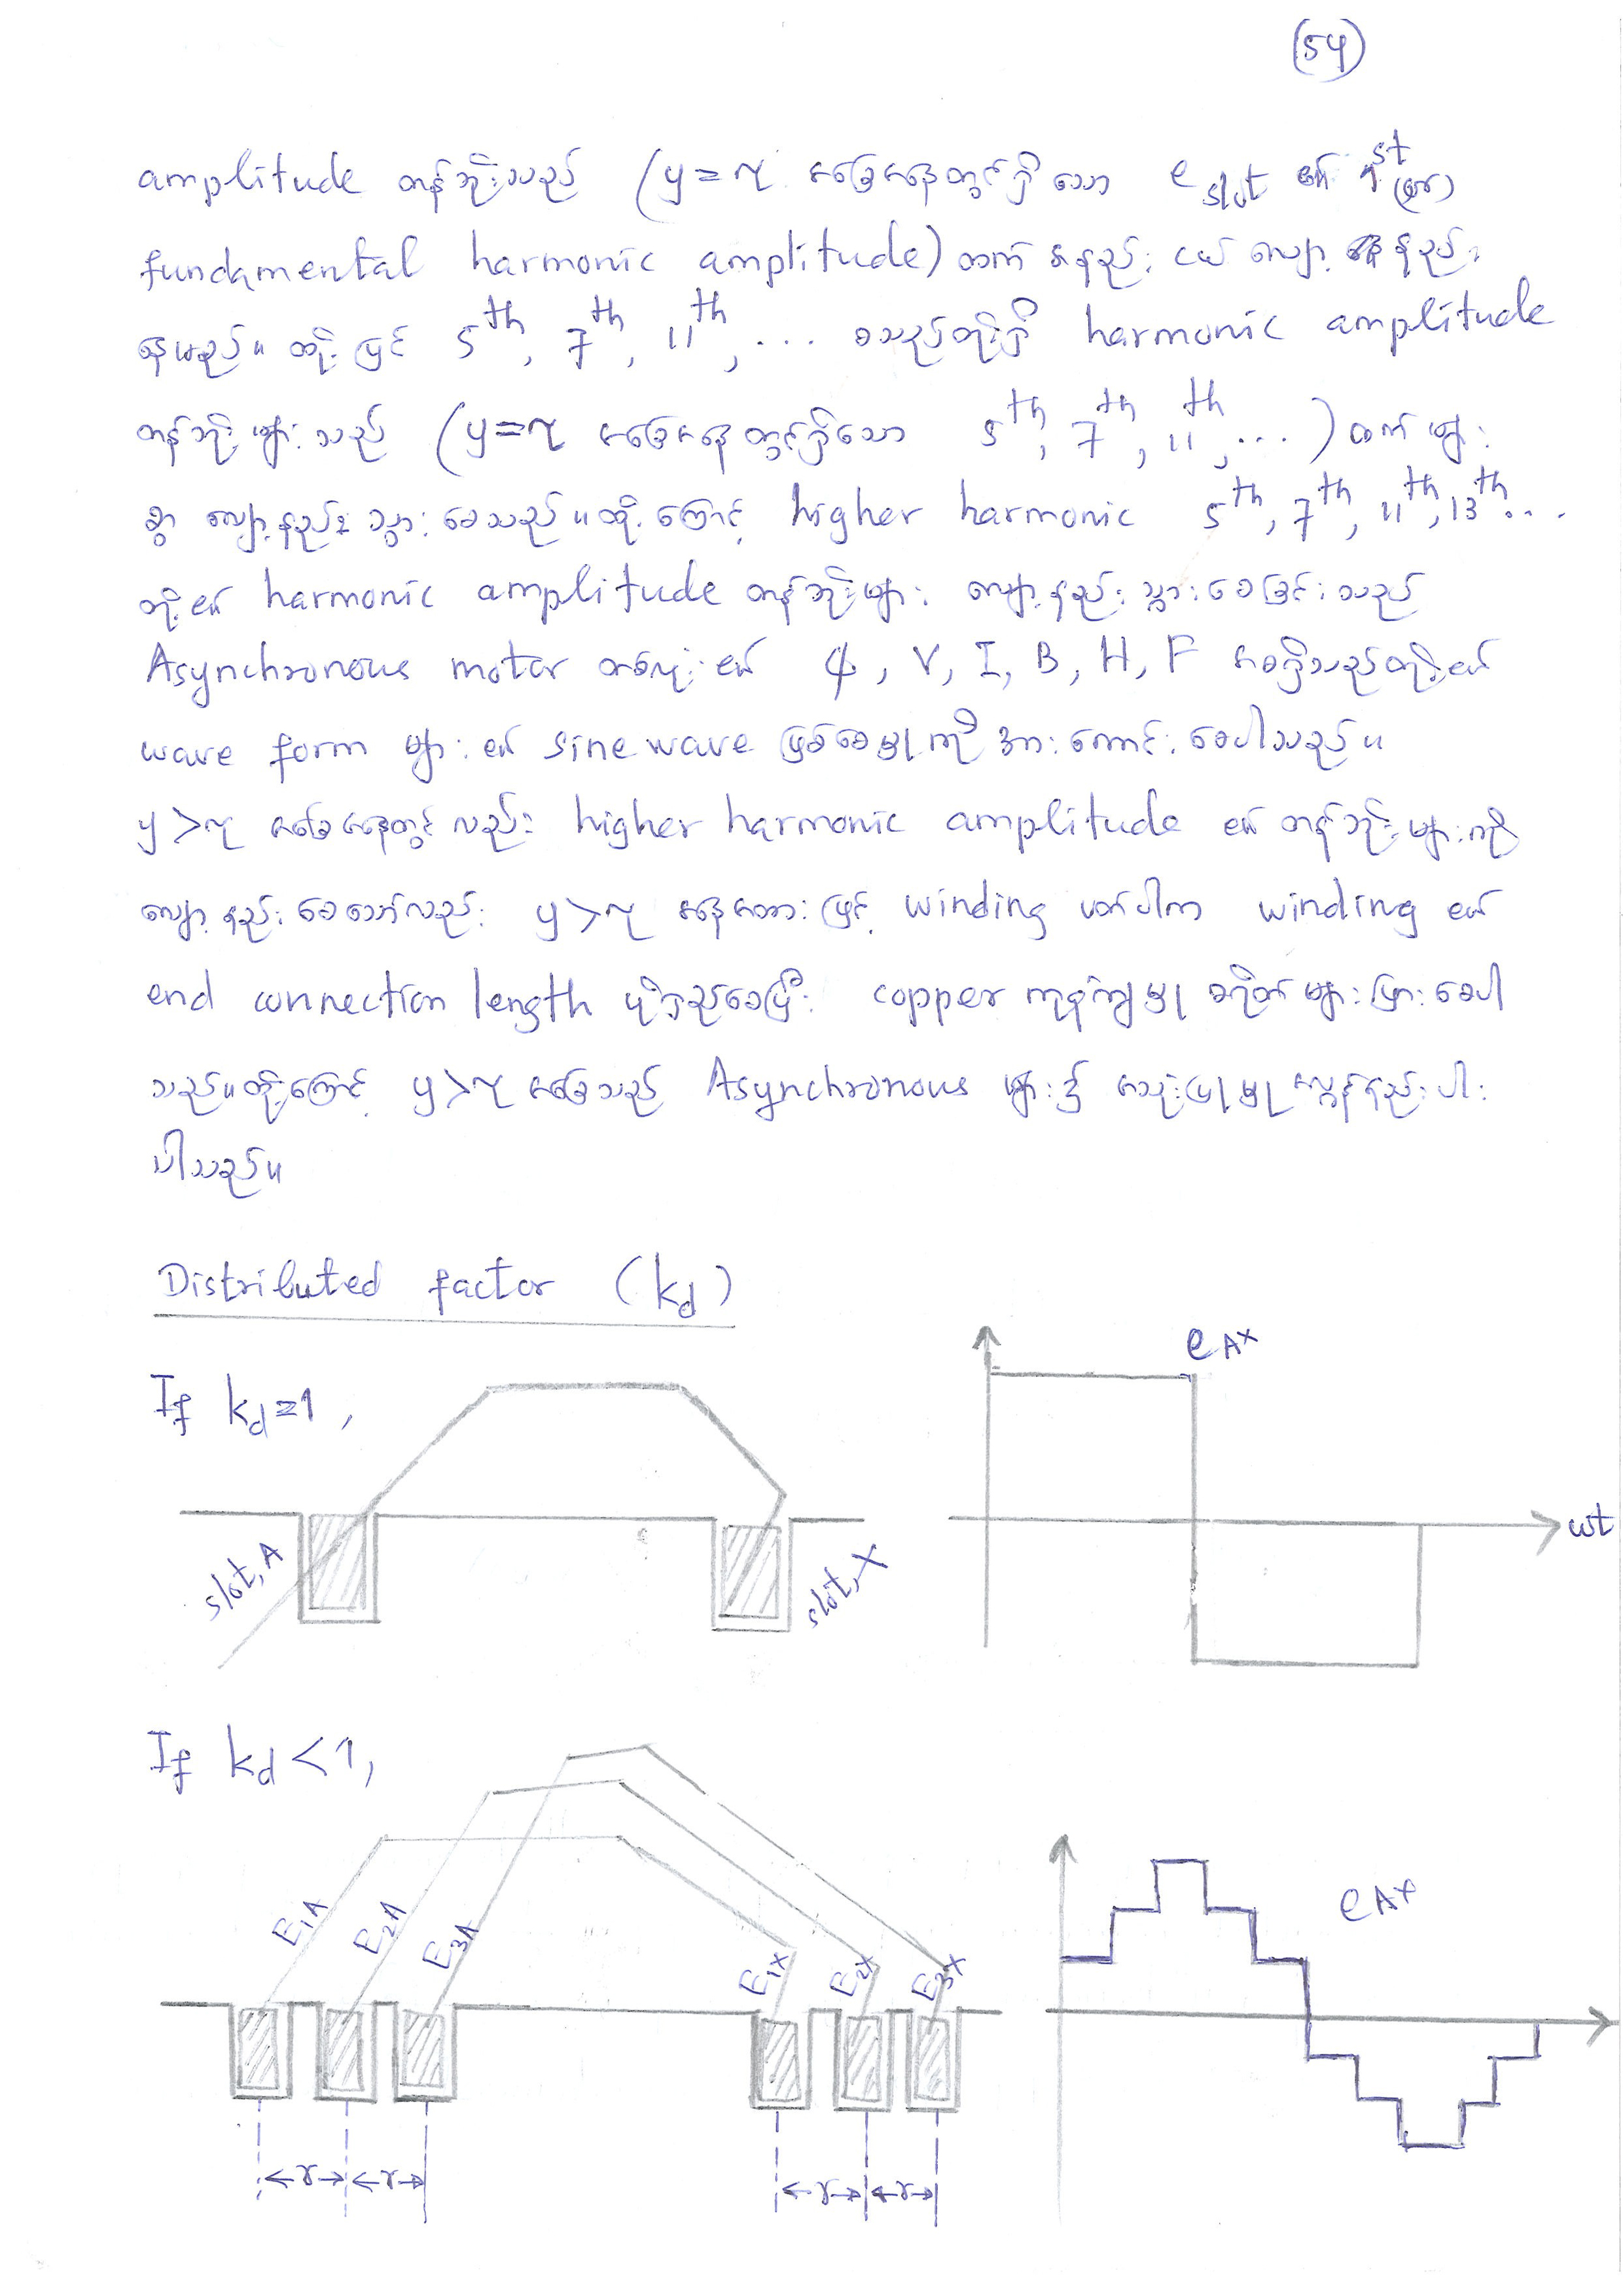 (54)
amplitude တန်ဘိုးသည် (y = τ အခြေအနေတွင်ရှိသော e slot ၏ 1st (or)
fundamental harmonic amplitude) ထက် အနည်းငယ် လျော့နည်း
နေမည်။ ထို့ပြင် 5th, 7th, 11th, ... စသည်တို့ရှိ harmonic amplitude
တန်ဘိုးများသည် (y = τ အခြေအနေတွင်ရှိသော 5th, 7th, 11th, ...) ထက် များ
စွာ လျော့နည်း သွားစေသည်။ ထို့ကြောင့် higher harmonic 5th, 7th, 11th, 13th...
တို့၏ harmonic amplitude တန်ဘိုးများ လျော့နည်းသွားစေခြင်းသည်
Asynchronous motor တစ်လုံး၏ ϕ, V, I, B, H, F စရှိသည်တို့၏
wave form များ၏ sine wave ဖြစ်စေမှုကို အားကောင်းစေပါသည်။
y > τ အခြေအနေတွင်လည်း higher harmonic amplitude ၏ တန်ဘိုးများကို
လျော့နည်းစေသော်လည်း y > τ အနေအထားဖြင့် winding ပတ်ပါက winding ၏
end connection length ပိုရှည်စေပြီး copper ကုန်ကျမှု စရိတ်များပြားစေပါ
သည်။ ထို့ကြောင့် y > τ အခြေသည် Asynchronous များ၌ အသုံးပြုမှု အလွန်နည်းပါး
ပါသည်။
Distributed factor (kd)
If kd = 1,
e AX
ωt
slot, A
slot, X
If kd < 1,
e AX
E1A E2A E3A
E1X E2X E3X
γ γ
γ γ